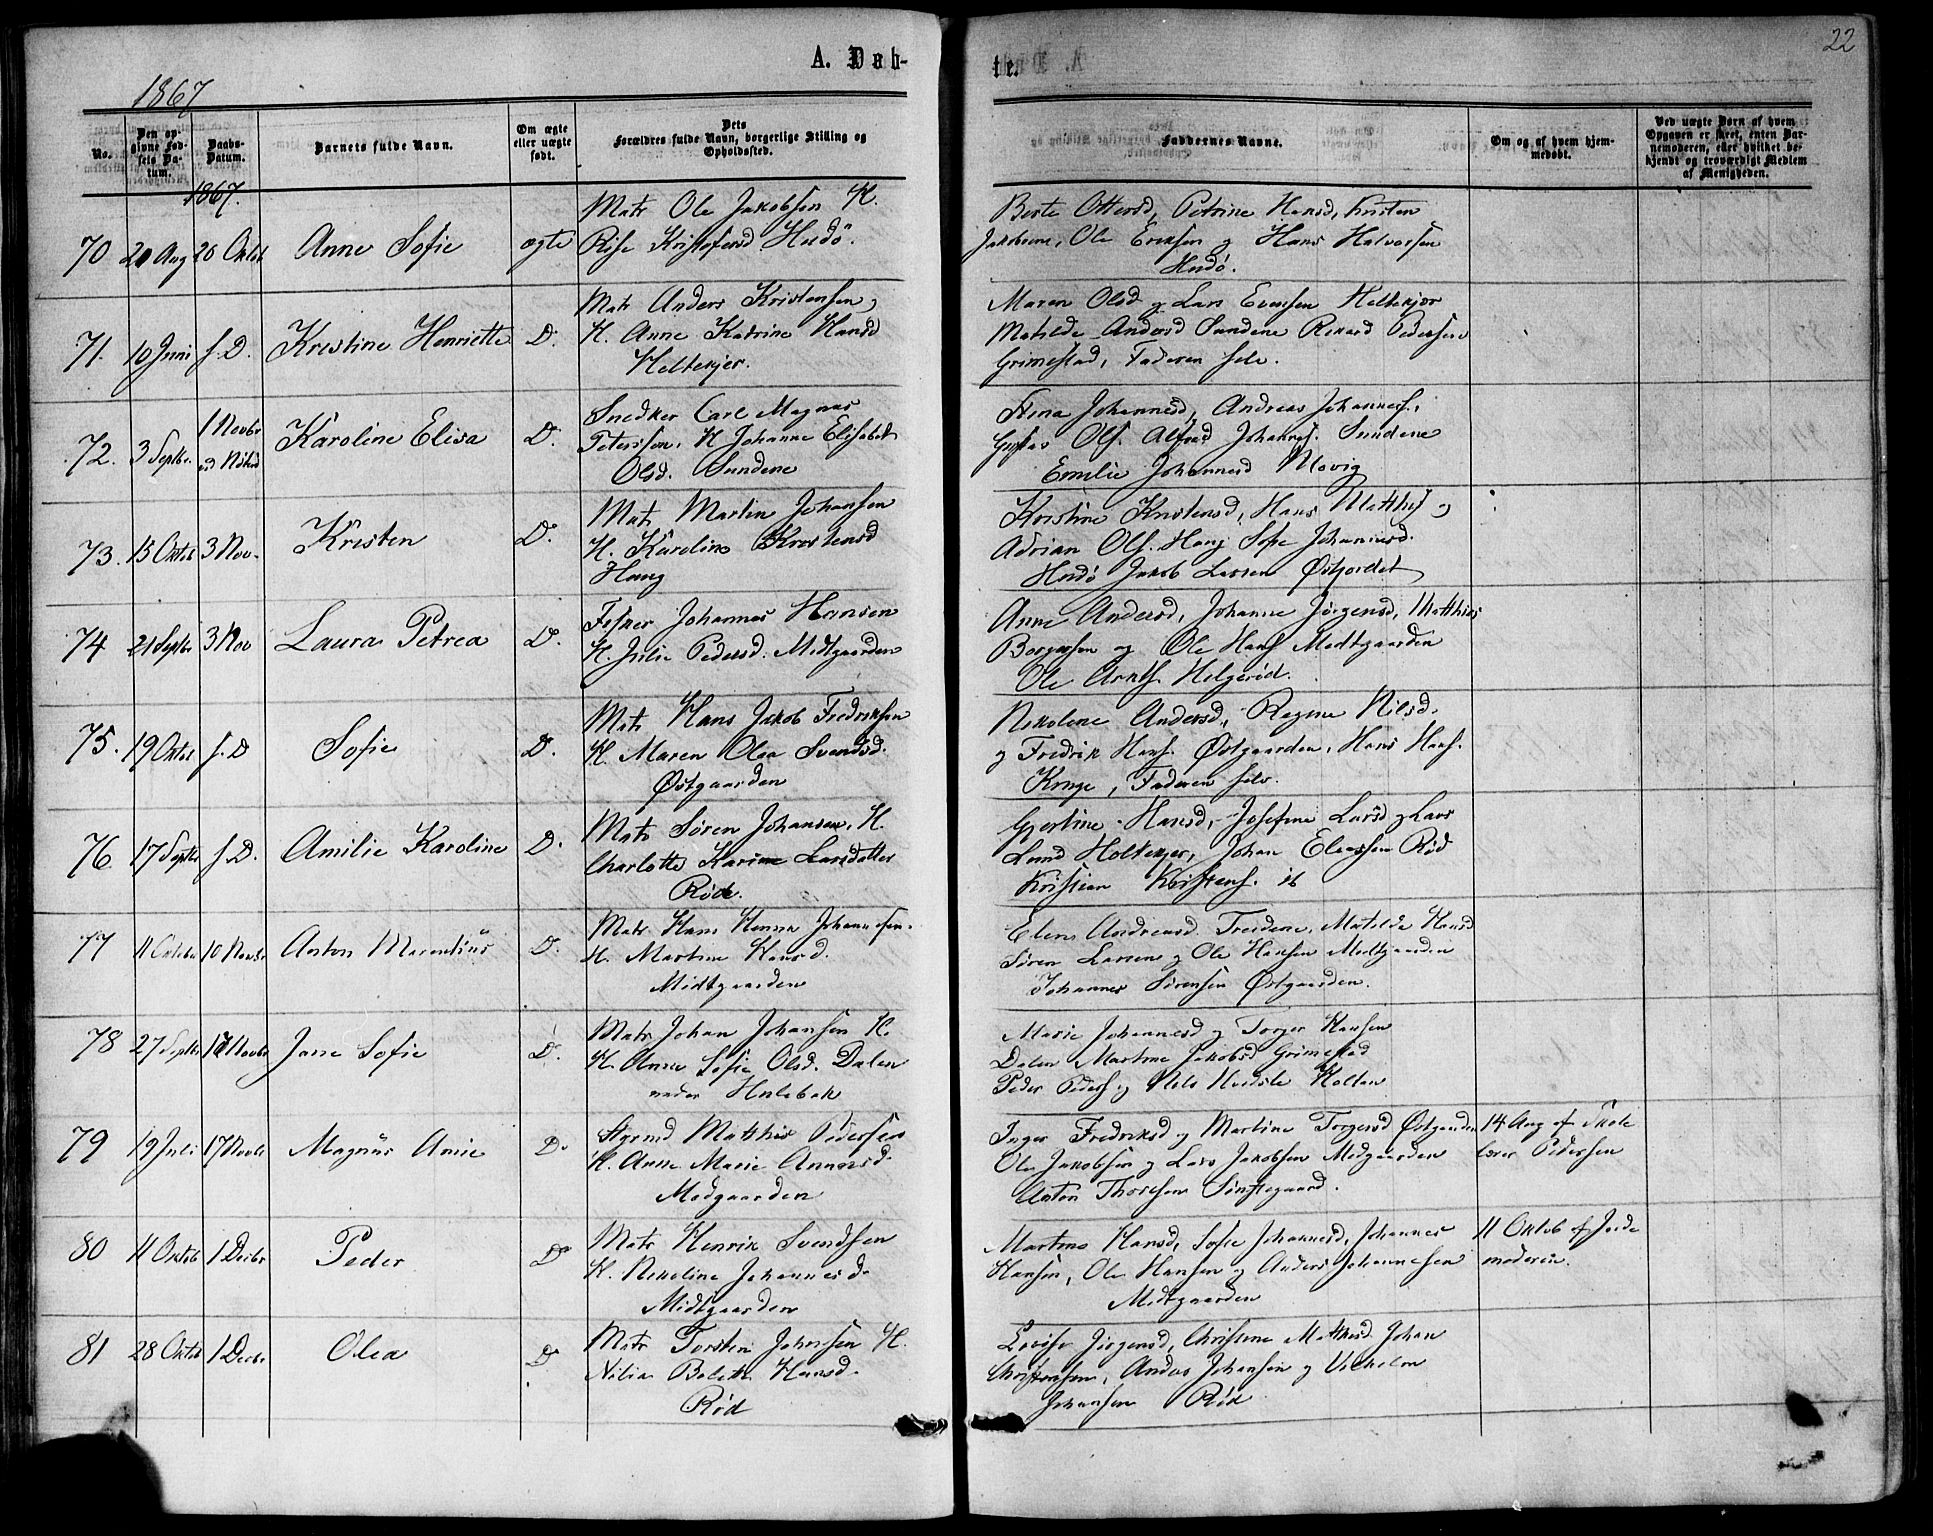 22
A. Døb-
te.
1867
No.
Den op-
givne Fød-
sels Da-
tum.
Daabs-
Datum.
Barnets fulde Navn.
Om ægte
eller uægte
født.
Dets
Forældres fulde Navn, borgerlige Stilling og
Opholdssted.
Faddernes Navne.
Om og af hvem hjem-
medøbt.
Ved uægte Børn af hvem
Opgaven er skeet, enten Bar-
nemoderen, eller hvilket be-
kjendt og troværdigt Medlem
af Menigheden.
1867.
70 20 Aug 20 Oktob Anne Sofie ægte
Matr Ole Jakobsen H.
Rise Kristofersd Husdö.
Berte Ottersd, Petrine Hansd, Kristen
Jakobsen, Ole Eriksen og Hans Halvorsen
Husdö.
71. 10 Juni s. D. Kristine Henriette D.
Matr Anders Kristensen,
H. Anne Katrine Hansd
Holtekjær.
Maren Olsd og Lars Evensen Holtekjær
Matilde Andersd Sundene Rikard Pedersen
Grimestad, Faderen selv.
72. 3 Septbr. 1 Novbr Karoline Elisa D.
Snedker Carl Magnus
Petersson, H. Johanne Elisabet
Olsd. Sundene
Stina Johannesd, Andreas Johanness.
Gustav Ols. Alfred Johannes. Sundene
Emilie Johannesd Movig
73. 15 Oktob 3 Nov. Kristen D.
Matr Martin Johansen
H. Karoline Kristensd
Haug
Kristine Kristensd, Hans Matths og
Adrian Ols. Haug Sofie Johannesd.
Husdö Jakob Larsen Østjordet
74 21 Septbr 3 Nov Laura Petrea D.
Fisker Johannes Hansen
H. Julie Pedersd. Midtgaarden
Anne Andersd, Johanne Jörgensd, Matthias
Borgersen og Ole Hans Midtgaarden
Ole Arnts. Helgerød.
75. 19 Oktob s. D Sofie D.
Matr Hans Jakob Fredriksen
H. Maren Olea Svendsd.
Østgaarden
Nikoline Andersd, Regine Nilsd.
og Fredrik Hans. Østgaarden, Hans Hans.
Kruge, Faderen selv.
76 17 Septbr s. D. Amilie Karoline D.
Matr Søren Johansen, H.
Charlotte Karine Larsdatter
Røde.
Gjertine Hansd, Josefine Larsd og Lars
Lund Holtekjer, Johan Eliassen Rød
Kristian Kristens. ib
77 11 Oktober 10 Novbr Anton Marentius D.
Matr Hans Henrik Johannesen.
H. Martine Hansd.
Midtgaarden
Elen Andreasd. Treidene, Matilde Hansd
Søren Larsen og Ole Hansen Midtgaarden
Johannes Sørensen Østgaarden.
78 27 Septbr 17 Novbr Jane Sofie D.
Matr Johan Johansen H.
H. Anne Sofie Olsd. Dalen
under Hulebak
Marie Johannesd og Torger Hansen
Dalen Martine Jakobsd Grimestad
Peder Peders og Nils Holten
79 19 Juli 17 Novbr Magnus Amie D.
Styrmd Matthis Pedersen
H. Anne Marie Annansd.
Modgaarden
Inger Fredriksd og Martine Torgersd Østgaarden
Ole Jakobsen og Lars Jakobsen Midgaarden
Anton Thoresen Sønstegaard.
14 Aug af Skole
lærer Pedersen
80 11 Oktob 1 Decbr Peder D
Matr Henrik Svendsen
H. Nikoline Johannesd.
Midtgaarden
Martine Hansd, Sofie Johannesd, Johannes
Hansen, Ole Hansen og Anders Johannesen
Midtgaarden
11 Oktob af Jorde
moderen.
81 28 Oktob 1 Decbr Olea D.
Matr Torsten Johnsen H.
Nilia Bolette Hansd.
Rød
Lovise Jörgensd, Christine Matthisd. Johan
Christensen, Andas Johansen og Vilhelm
Johansen Rød